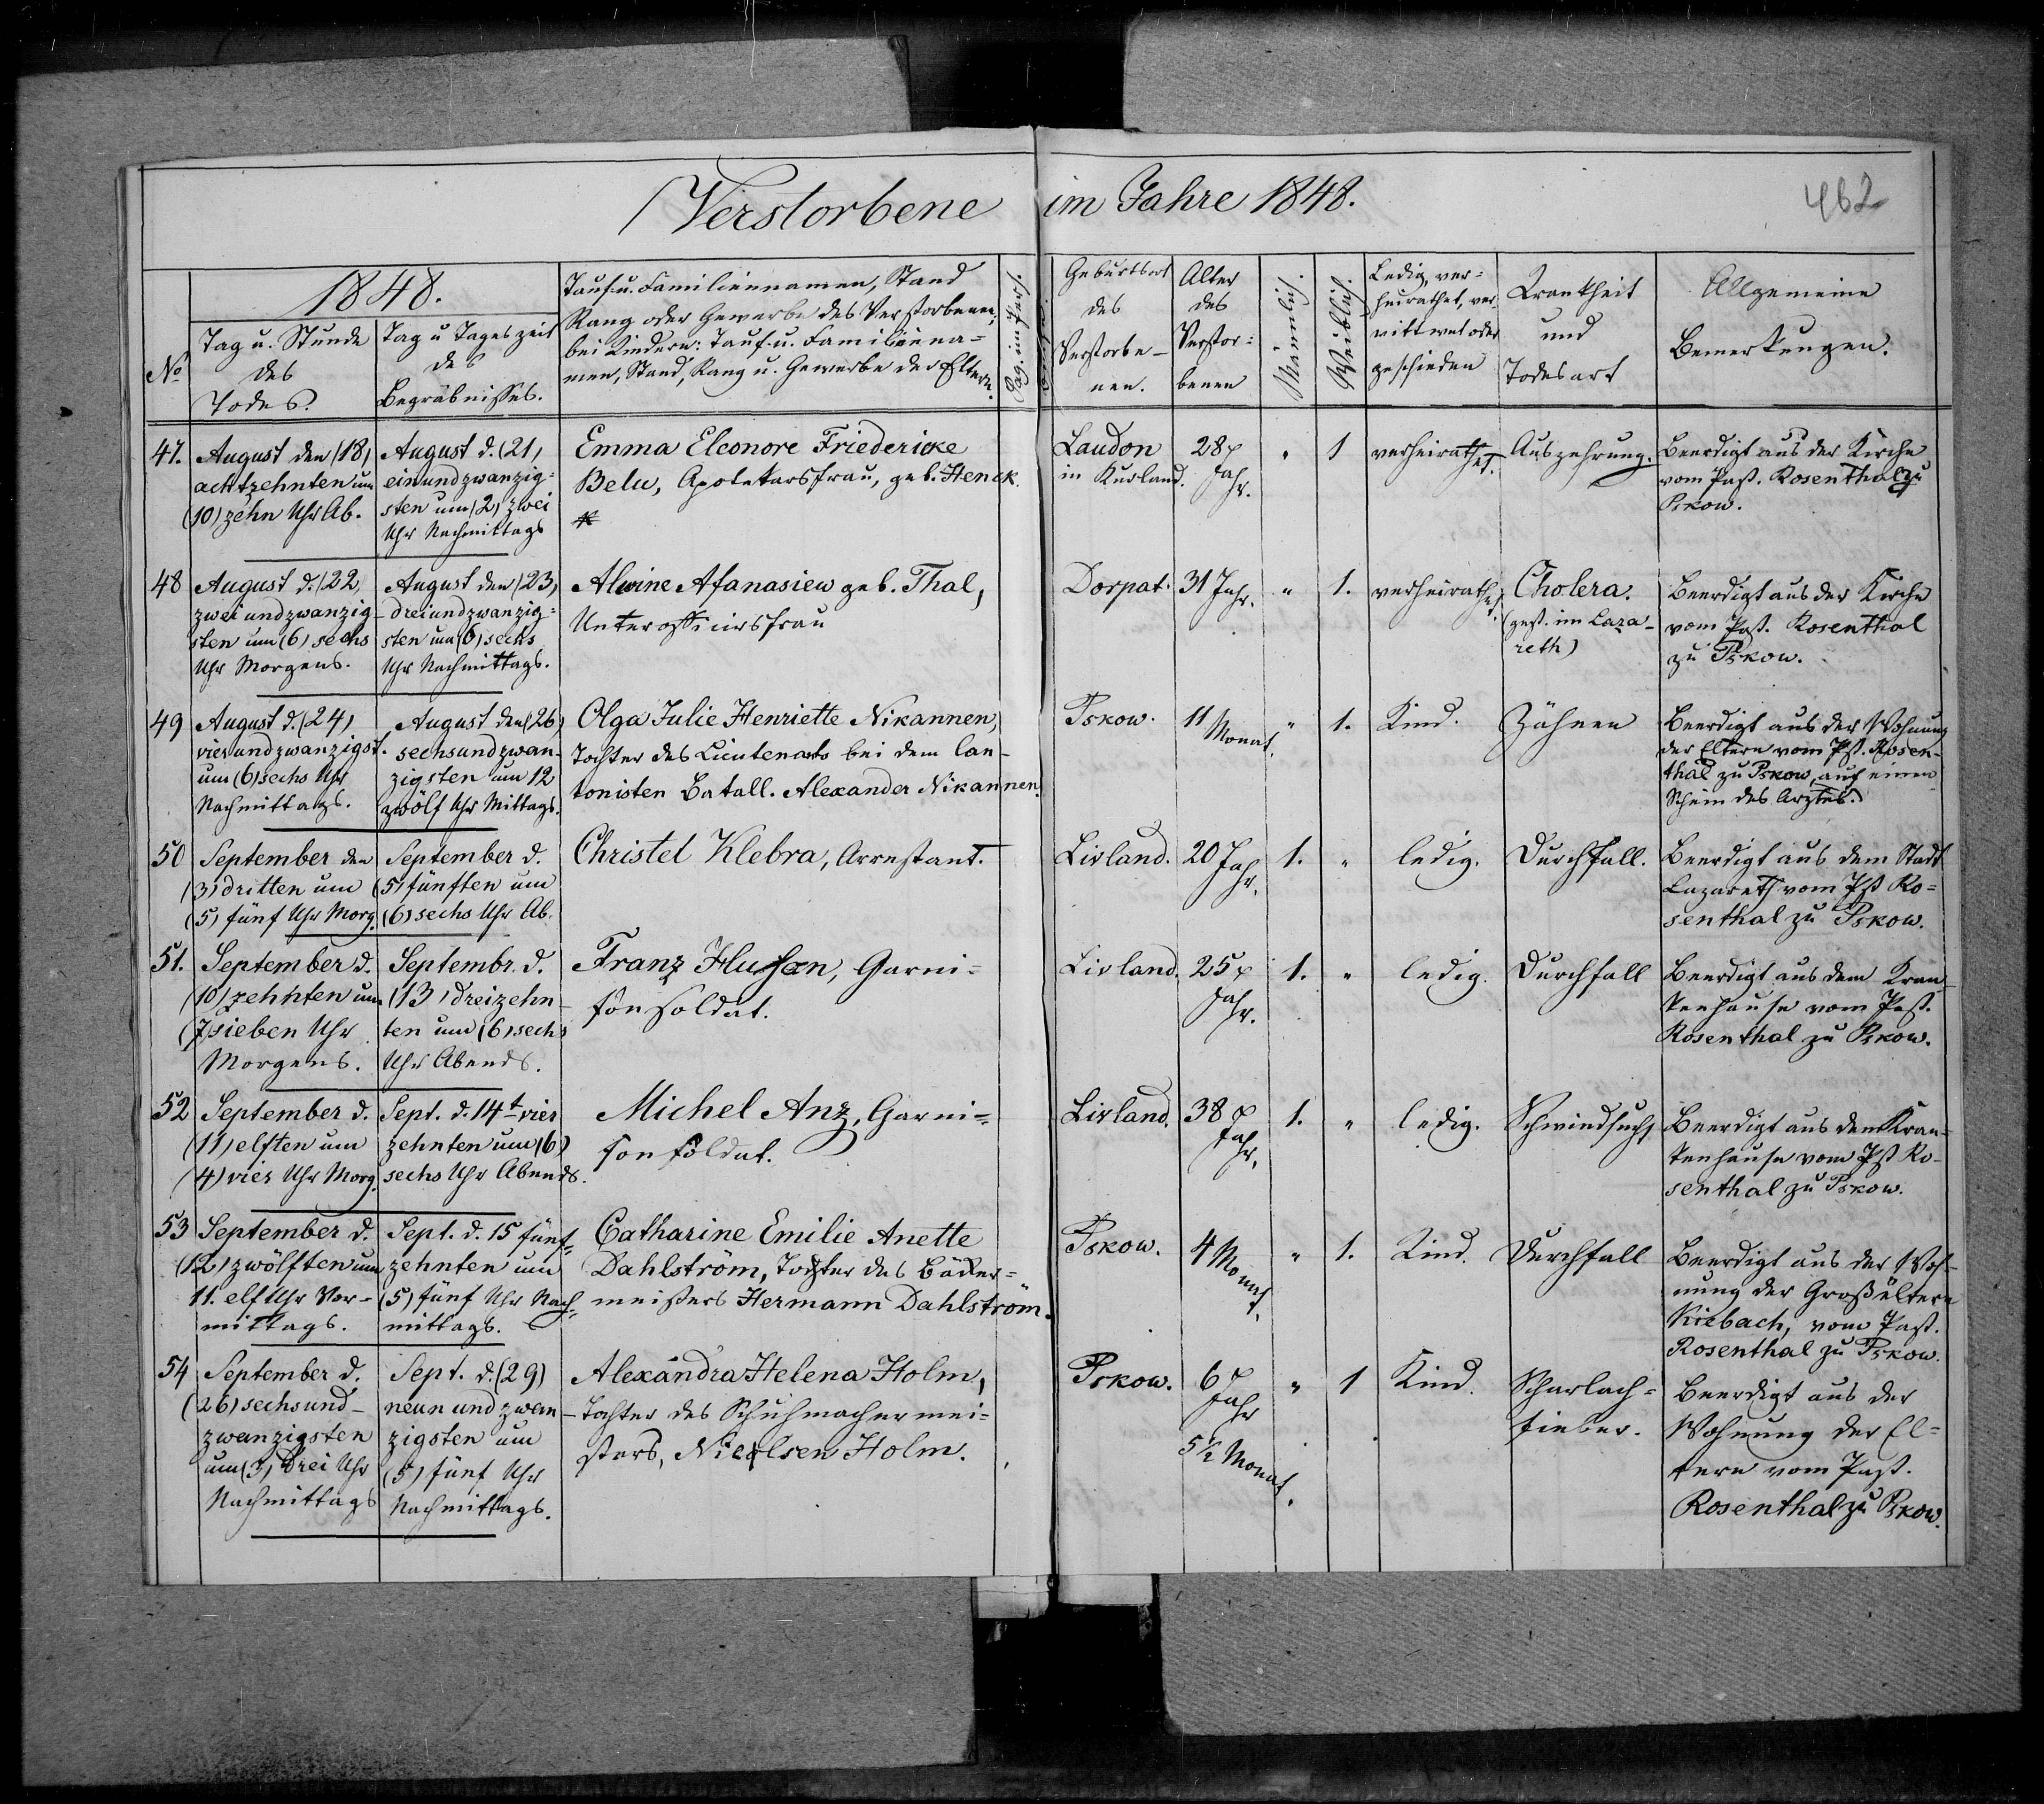 Verstorbene im Jahre 1848.
462
1848.
No
Tag u. Stunde
des
Todes.
Tag u Tageszeit
des
Begräbnisses.
Tauf u. Familiennamen, Stand
Rang oder Gewerbe des Verstorbenen,
bei Kindern: Tauf u. Familienna-
men, Stand, Rang u. Gewerbe der Eltern.
Geburtsort
des
Verstorbe-
nen.
Alter
des
Verstor-
benen
Männlich.
Weiblich.
Ledig, ver-
heirathet, ver-
wittwet oder
geschieden
Krankheit
und
Todesart
Allgemeine
Bemerkungen.
47.
August den (18)
achtzehnten um
(10) zehn Uhr Ab.
August d. (21)
ein und zwanzig-
sten um (2) zwei
Uhr Nachmittags
Emma Eleonore Friedericke
Belu, Apotekersfrau, geb. Henck.
Laudon
in Kurland.
28
Jahr.
" 1
verheirathet.
Auszehrung.
Beerdigt aus der Kirche
vom Past. Rosenthal zu
Pskow.
48
August d. (22,
zwei und zwanzig-
sten um (6) sechs
Uhr Morgens.
August den (23)
drei und zwanzig-
sten um (6) sechs
Uhr Nachmittags.
Alwine Afanasiew geb. Thal,
Unterofficirsfrau
Dorpat.
31 Jahr.
" 1.
verheirathet.
Cholera.
(gest. im Laza-
reth)
Beerdigt aus der Kirche
vom Past. Rosenthal
zu Pskow.
49
August d. (24)
vier und zwanzigst.
um (6) sechs Uhr
Nachmittags.
August den (26)
sechsundzwan-
zigsten um 12
zwölf Uhr Mittags.
Olga Julie Henriette Nikannen,
Tochter des Lieutenants bei dem Can-
tonisten Batall. Alexander Nikannen.
Pskow.
11 Monat.
" 1.
Kind.
Zähnen
Beerdigt aus der Wohnung
der Eltern vom Pst. Rosen-
thal zu Pskow, auf einen
Schein des Arztes.
50
September den
(3) dritten um
(5) fünf Uhr Morg.
September d.
(5) fünften um
(6) sechs Uhr Ab.
Christel Klebra, Arrestant.
Livland.
20 Jahr.
1. "
ledig.
Durchfall.
Beerdigt aus dem Stadt
Lazareth vom Pst Ro-
senthal zu Pskow.
51.
September d.
(10) zehnten um
(7) sieben Uhr
Morgens.
Septembr. d.
(13) dreizehn-
ten um (6) sechs
Uhr Abends.
Franz Husen, Garni-
sonsoldat.
Livland.
25
Jahr.
1. "
ledig.
Durchfall
Beerdigt aus dem Kran-
kenhause vom Past.
Rosenthal zu Pskow.
52
September d.
(11) elften um
(4) vier Uhr Morg.
Sept. d. 14t vier
zehnten um (6)
sechs Uhr Abends.
Michel Anz, Garni-
sonsoldat.
Livland.
38
Jahr.
1. "
ledig.
Schwindsucht
Beerdigt aus dem Kran-
kenhause vom Pst Ro-
senthal zu Pskow.
53
September d.
(12) zwölften um
11. elf Uhr Vor-
mittags.
Sept. d. 15 fünf-
zehnten um
(5) fünf Uhr Nach-
mittags.
Catharine Emilie Anette
Dahlström, Tochter des Bäcker-
meisters Hermann Dahlström.
Pskow.
4 Monat.
" 1.
Kind.
Durchfall
Beerdigt aus der Woh-
nung der Großältern
Kiebach, vom Past.
Rosenthal zu Pskow.
54
September d.
(26) sechsund-
zwanzigsten
um (3) drei Uhr
Nachmittags
Sept. d. (29)
neun und zwan-
zigsten um
(5) fünf Uhr
Nachmittags.
Alexandra Helena Holm,
Tochter des Schuhmachermei-
sters, Holm.
Pskow.
6
Jahr
5½ Monat.
" 1
Kind.
Scharlach-
fieber.
Beerdigt aus der
Wohnung der El-
tern vom Past.
Rosenthal zu Pskow.